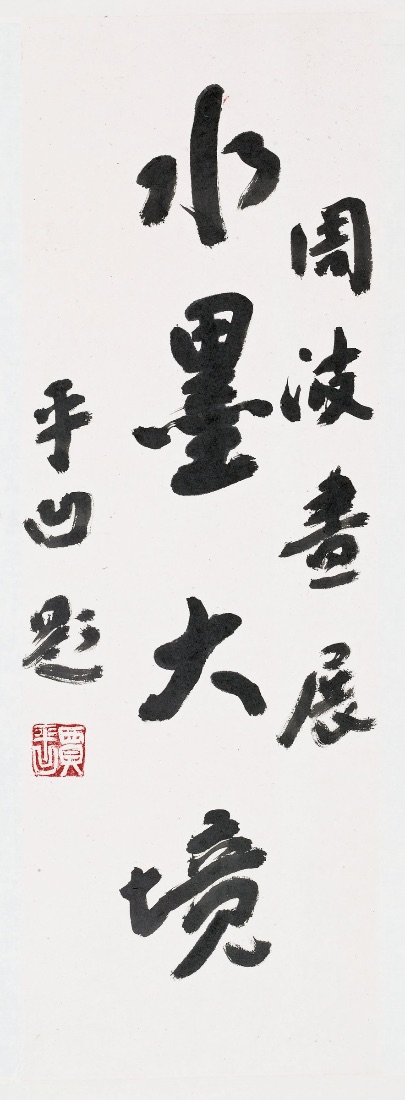 周波畫展
水墨大境
平凹题
賈平凹